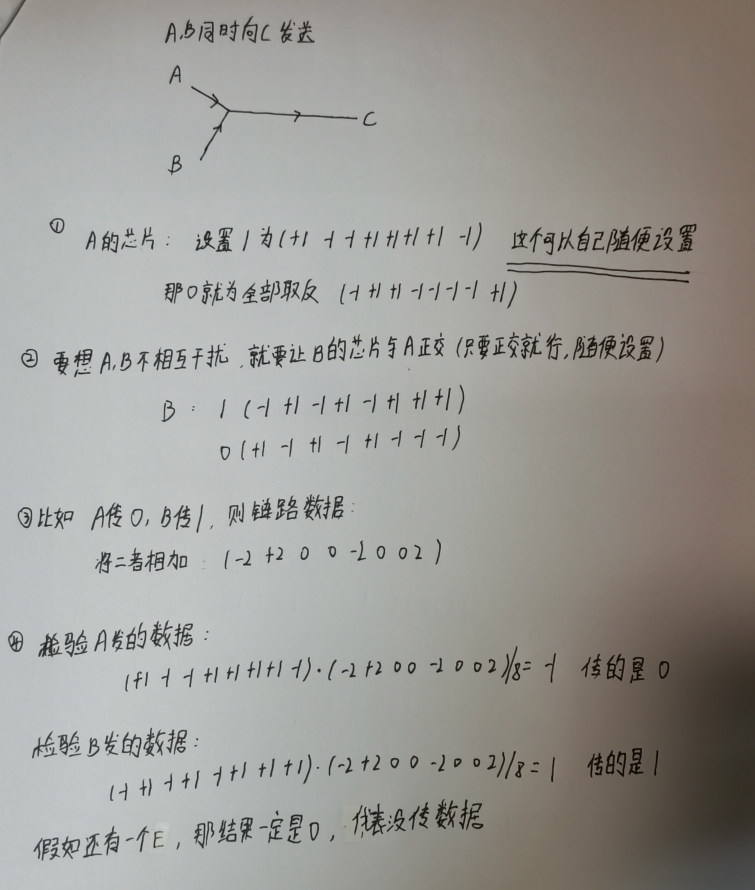 A,B同时向C发送
A
C
B
① A的芯片: 设置1为(+1 -1 -1 +1 +1 +1 +1 -1) 这个可以自己随便设置
那0就为全部取反 (-1 +1 +1 -1 -1 -1 -1 +1)
② 要想A,B不相互干扰,就要让B的芯片与A正交(只要正交就行,随便设置)
B: 1 (-1 +1 -1 +1 -1 +1 +1 +1)
0 (+1 -1 +1 -1 +1 -1 -1 -1)
③ 比如 A传0, B传1, 则链路数据:
将二者相加: (-2 +2 0 0 -2 0 0 2)
④ 检验A发的数据:
(+1 -1 -1 +1 +1 +1 +1 -1)·(-2 +2 0 0 -2 0 0 2)/8 = -1 传的是0
检验B发的数据:
(-1 +1 -1 +1 -1 +1 +1 +1)·(-2 +2 0 0 -2 0 0 2)/8 = 1 传的是1
假如还有一个E,那结果一定是0,代表没传数据